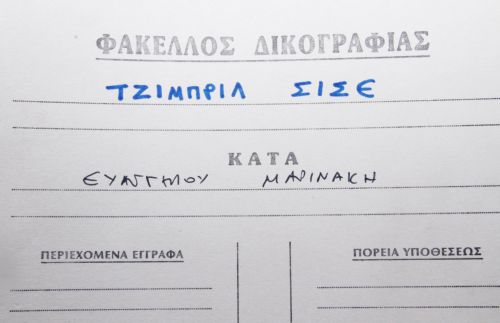 ΦΑΚΕΛΛΟΣ ΔΙΚΟΓΡΑΦΙΑΣ
ΤΖΙΜΠΡΙΛ ΣΙΣΕ
ΚΑΤΑ
ΕΥΑΓΓΕΛΟΥ ΜΑΡΙΝΑΚΗ
ΠΕΡΙΕΧΟΜΕΝΑ ΕΓΓΡΑΦΑ
ΠΟΡΕΙΑ ΥΠΟΘΕΣΕΩΣ